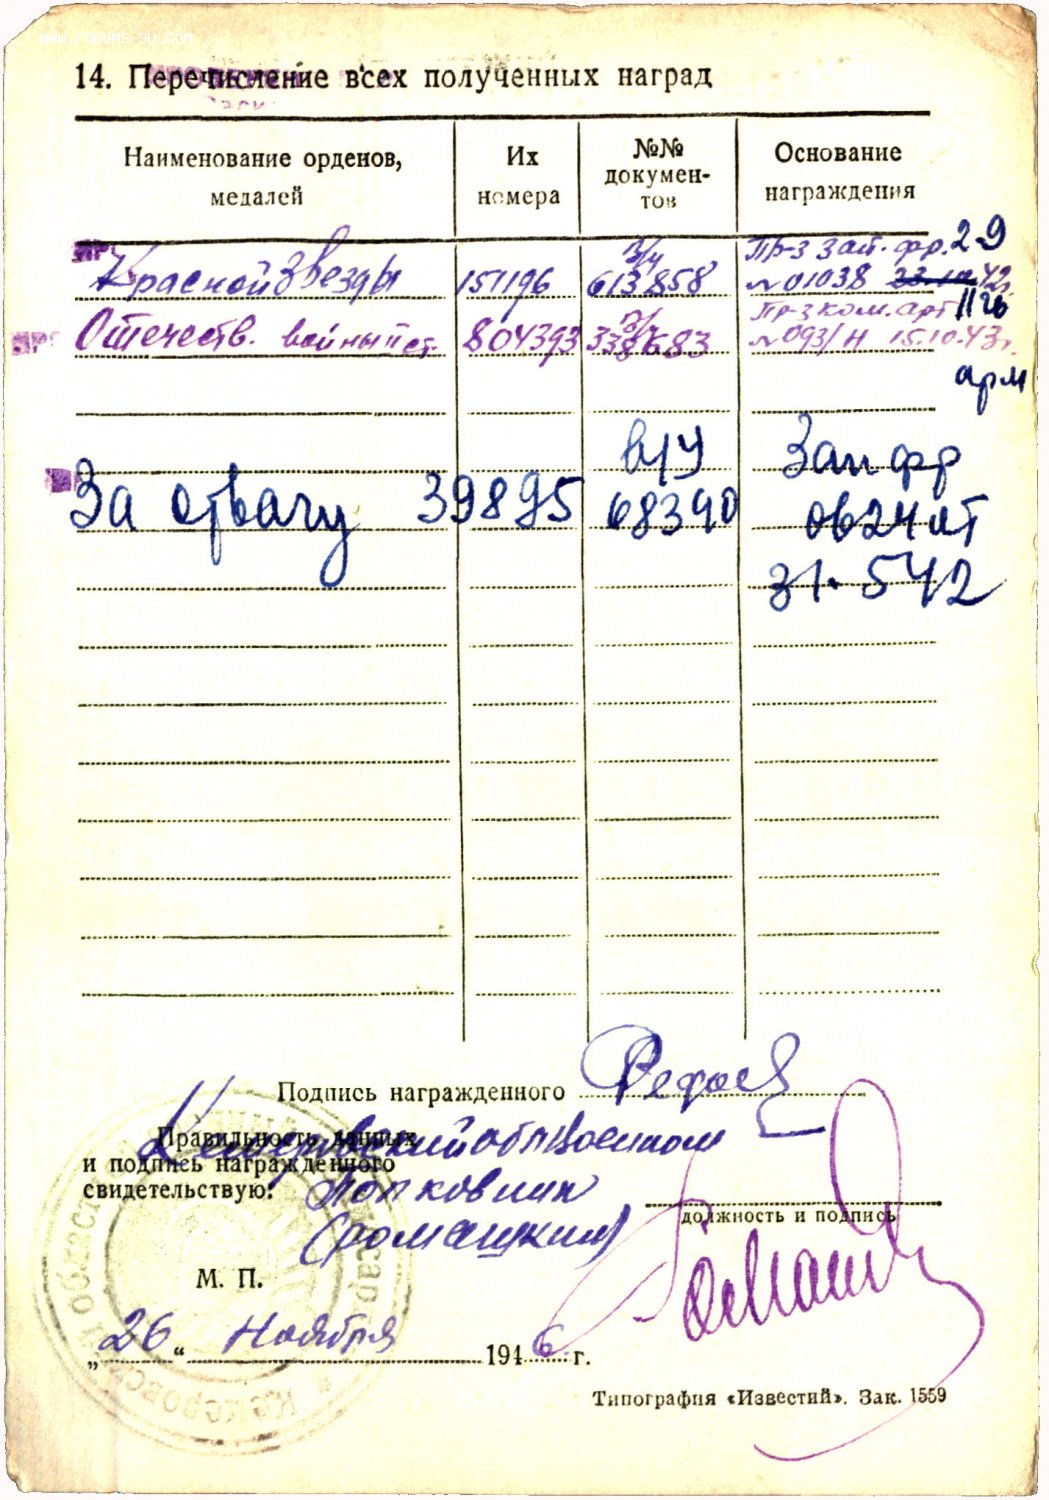 WWW.FORUMS-SU.COM
14. Перечисление всех полученных наград
Наименование орденов, медалей
Их номера
№№ документов
Основание награждения
Красной Звезды 151196 в/у 613858 Пр-з Зап. фр. 29
№ 01038 23.10.42г.
Отечеств. войны II ст. 804393 338683 Пр-з ком. арт 11 гв
№ 093/Н 15.10.43г.
арм
За отвагу 39895 в/у 68390 Зап фр
0624 от
31.5 42
Подпись награжденного
Правильность данных
и подпись награжденного
свидетельствую:
Кемеровский облвоенком
Полковник
(Ромацкий)
должность и подпись
М. П.
„26“ Ноября 1946 г.
Типография «Известий». Зак. 1559